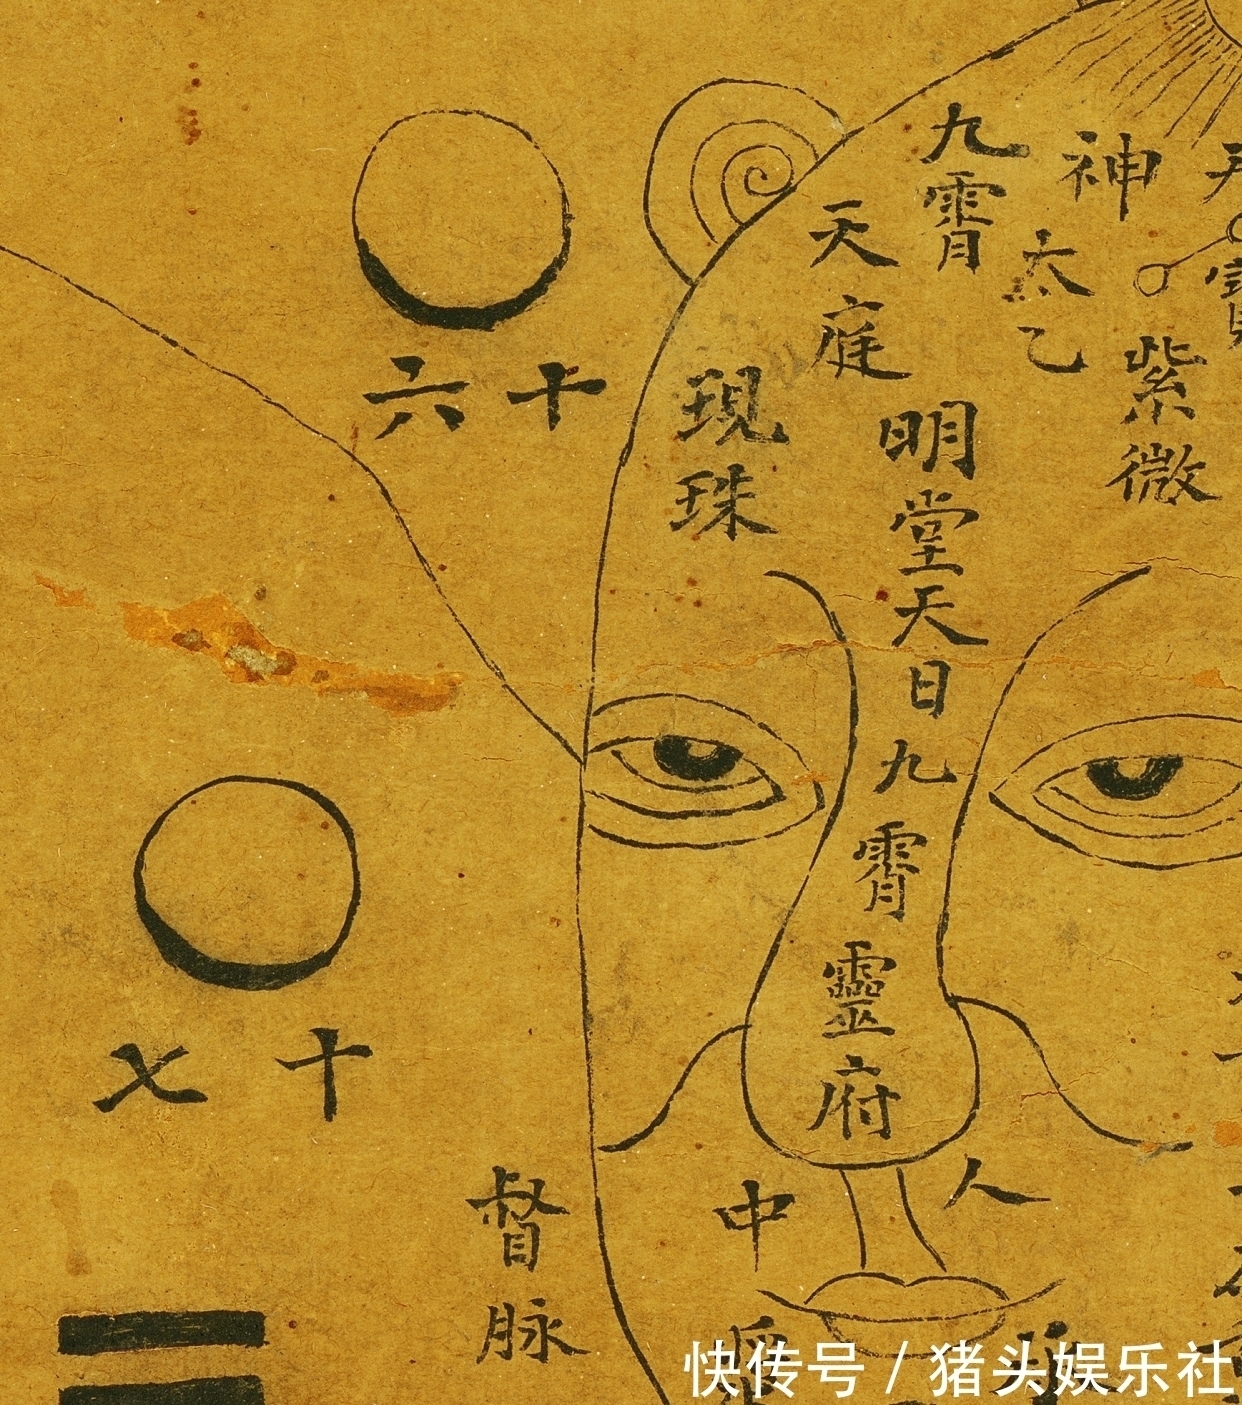 九霄
神
太乙
天庭
紫微
現珠
明堂天日九霄靈府
十六
十七
人中
督脉
快传号 / 猪头娱乐社